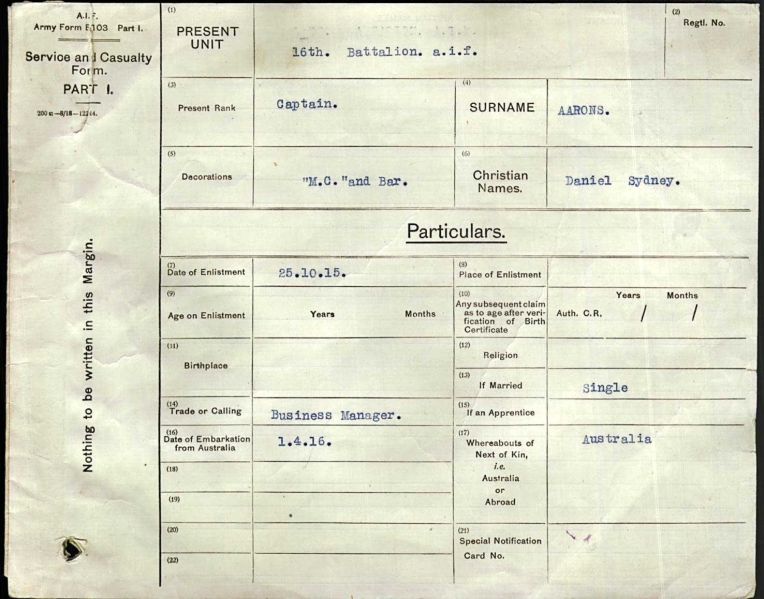 A.I.F.
Army Form B.103 Part I.
Service and Casualty
Form.
PART I.
Nothing to be written in this Margin.
(1)
PRESENT
UNIT
16th. Battalion. a.i.f.
(2)
Regtl. No.
(3)
Present Rank
Captain.
(4)
SURNAME
AARONS.
(5)
Decorations
"M.C."and Bar.
(6)
Christian
Names.
Daniel Sydney.
Particulars.
(7)
Date of Enlistment
25.10.15.
(8)
Place of Enlistment
(9)
Age on Enlistment
Years Months
(10)
Any subsequent claim
as to age after veri-
fication of Birth
Certificate
Years Months
Auth. C.R. / /
(11)
Birthplace
(12)
Religion
(13)
If Married
Single
(14)
Trade or Calling
Business Manager.
(15)
If an Apprentice
(16)
Date of Embarkation
from Australia
1.4.16.
(17)
Whereabouts of
Next of Kin,
i.e.
Australia
or
Abroad
Australia
(18)
(19)
(20)
(21)
Special Notification
Card No.
(22)